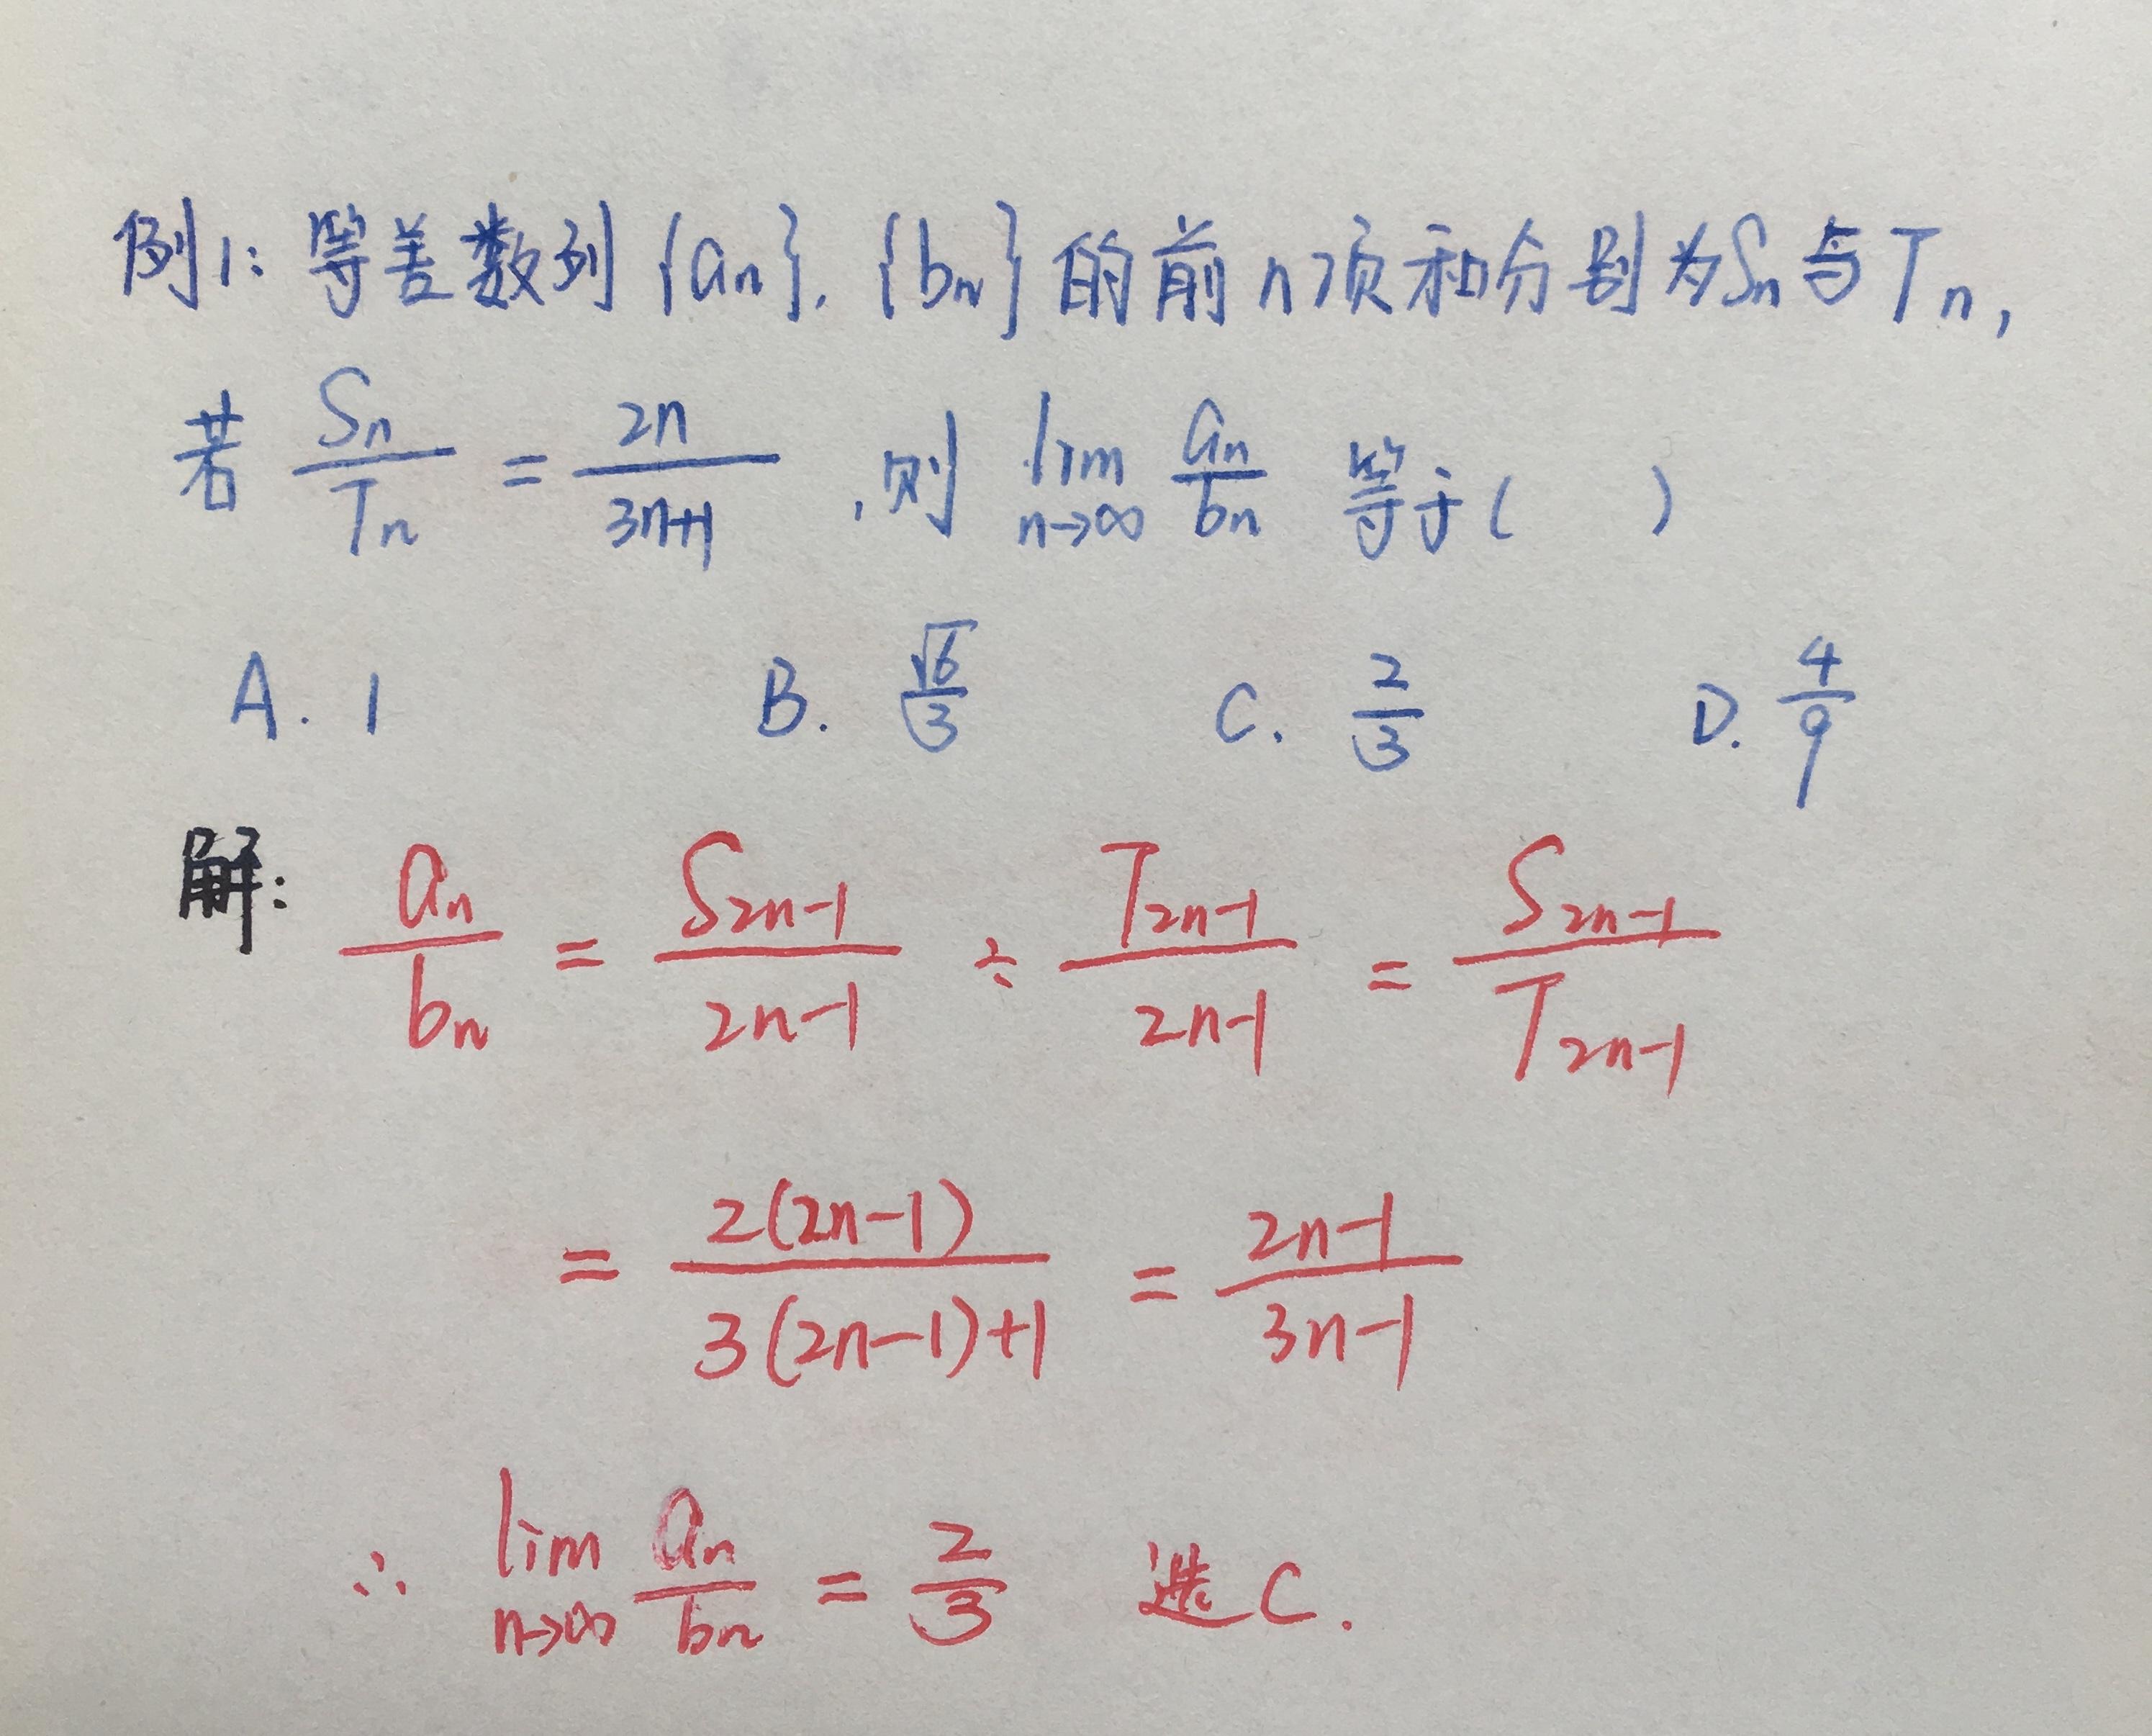 例1: 等差数列 {an}, {bn} 的前n项和分别为Sn与Tn,
若 Sn/Tn = 2n/3n+1 , 则 lim n→∞ an/bn 等于( )
A. 1 B. √6/3 C. 2/3 D. 4/9
解: an/bn = S2n-1/2n-1 ÷ T2n-1/2n-1 = S2n-1/T2n-1
= 2(2n-1)/3(2n-1)+1 = 2n-1/3n-1
∴ lim n→∞ an/bn = 2/3 选C.